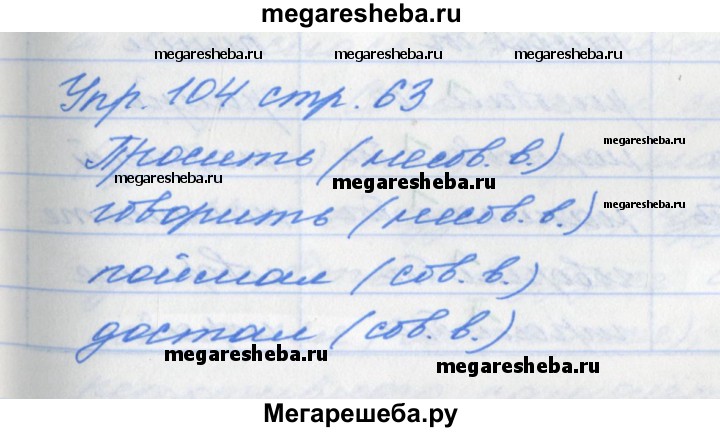 megaresheba.ru
megaresheba.ru megaresheba.ru
Упр. 104 стр. 63
megaresheba.ru
Просить (несов. в.)
megaresheba.ru megaresheba.ru
говорить (несов. в.)
megaresheba.ru
поймал (сов. в.)
достал (сов. в.)
megaresheba.ru megaresheba.ru
Мегарешеба.ру